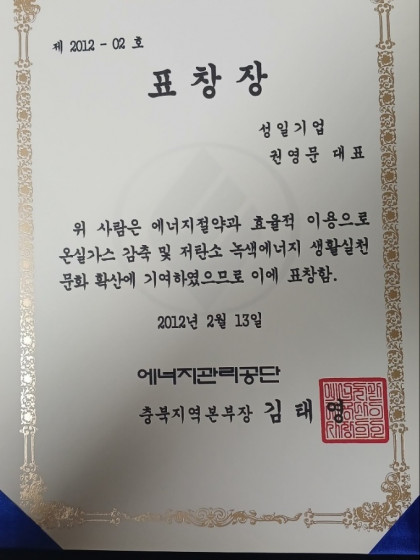 제 2012 - 02 호
표 창 장
성일기업
권영문 대표
위 사람은 에너지절약과 효율적 이용으로
온실가스 감축 및 저탄소 녹색에너지 생활실천
문화 확산에 기여하였으므로 이에 표창함.
2012년 2월 13일
에너지관리공단
충북지역본부장 김 태 영